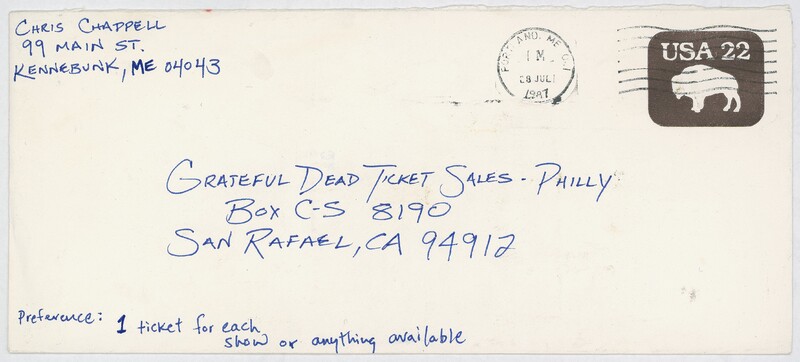 CHRIS CHAPPELL
99 MAIN ST.
KENNEBUNK, ME 04043
PORTLAND, ME
PM
28 JUL
1987
USA 22
GRATEFUL DEAD TICKET SALES - PHILLY
BOX C-S 8190
SAN RAFAEL, CA 94912
Preference: 1 ticket for each
show or anything available